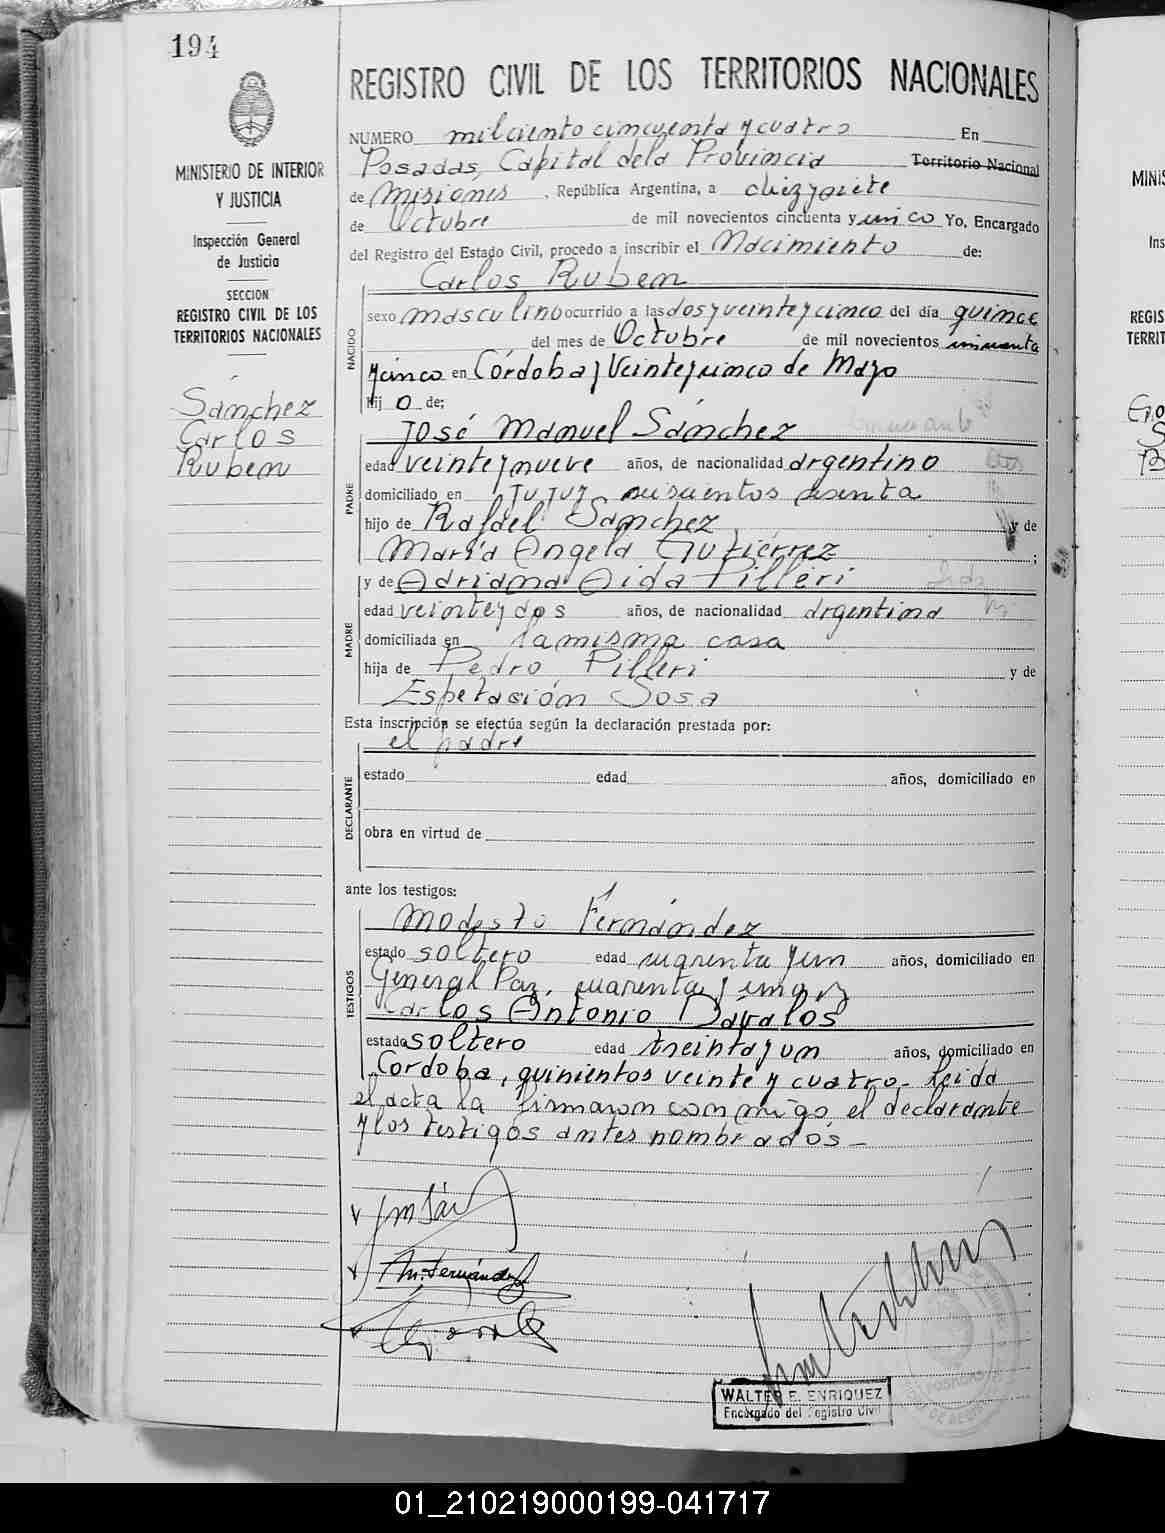 194
MINISTERIO DE INTERIOR
Y JUSTICIA
Inspección General
de Justicia
SECCION
REGISTRO CIVIL DE LOS
TERRITORIOS NACIONALES
Sánchez
Carlos
Ruben
REGISTRO CIVIL DE LOS TERRITORIOS NACIONALES
NUMERO mil ciento cincuenta y cuatro En
Posadas, Capital dela Provincia Territorio Nacional
de Misiones, República Argentina, a diez y siete
de Octubre de mil novecientos cincuenta y cinco Yo, Encargado
del Registro del Estado Civil, procedo a inscribir el Nacimiento de:
Carlos Ruben
NACIDO
sexo masculino ocurrido a las dos y veinte y cinco del día quince
del mes de Octubre de mil novecientos cincuenta
y cinco en Córdoba y Veinte y cinco de Mayo
hij o de;
José Manuel Sánchez
PADRE
edad veinte y nueve años, de nacionalidad argentino
domiciliado en Jujuy, seiscientos
hijo de Rafael Sánchez y de
María Angela Gutiérrez ;
y de Adriana Aida Pilleri
MADRE
edad veinte y dos años, de nacionalidad argentina
domiciliada en la misma casa
hija de Pedro Pilleri y de
Espetación Sosa
Esta inscripción se efectúa según la declaración prestada por:
el padre
DECLARANTE
estado edad años, domiciliado en
obra en virtud de
ante los testigos:
TESTIGOS
Modesto Fernández
estado soltero edad cuarenta y un años, domiciliado en
General Paz, cuarenta y uno y
Carlos Antonio Dávalos
estado soltero edad treinta y un años, domiciliado en
Córdoba, quinientos veinte y cuatro- Leida
el acta la firmaron con migo, el declarante
y los testigos antes nombrados.-
M. Fernández
WALTER E. ENRIQUEZ
Encargado del Registro Civil
MINIS
Ins
REGIS
TERRIT
01_210219000199-041717